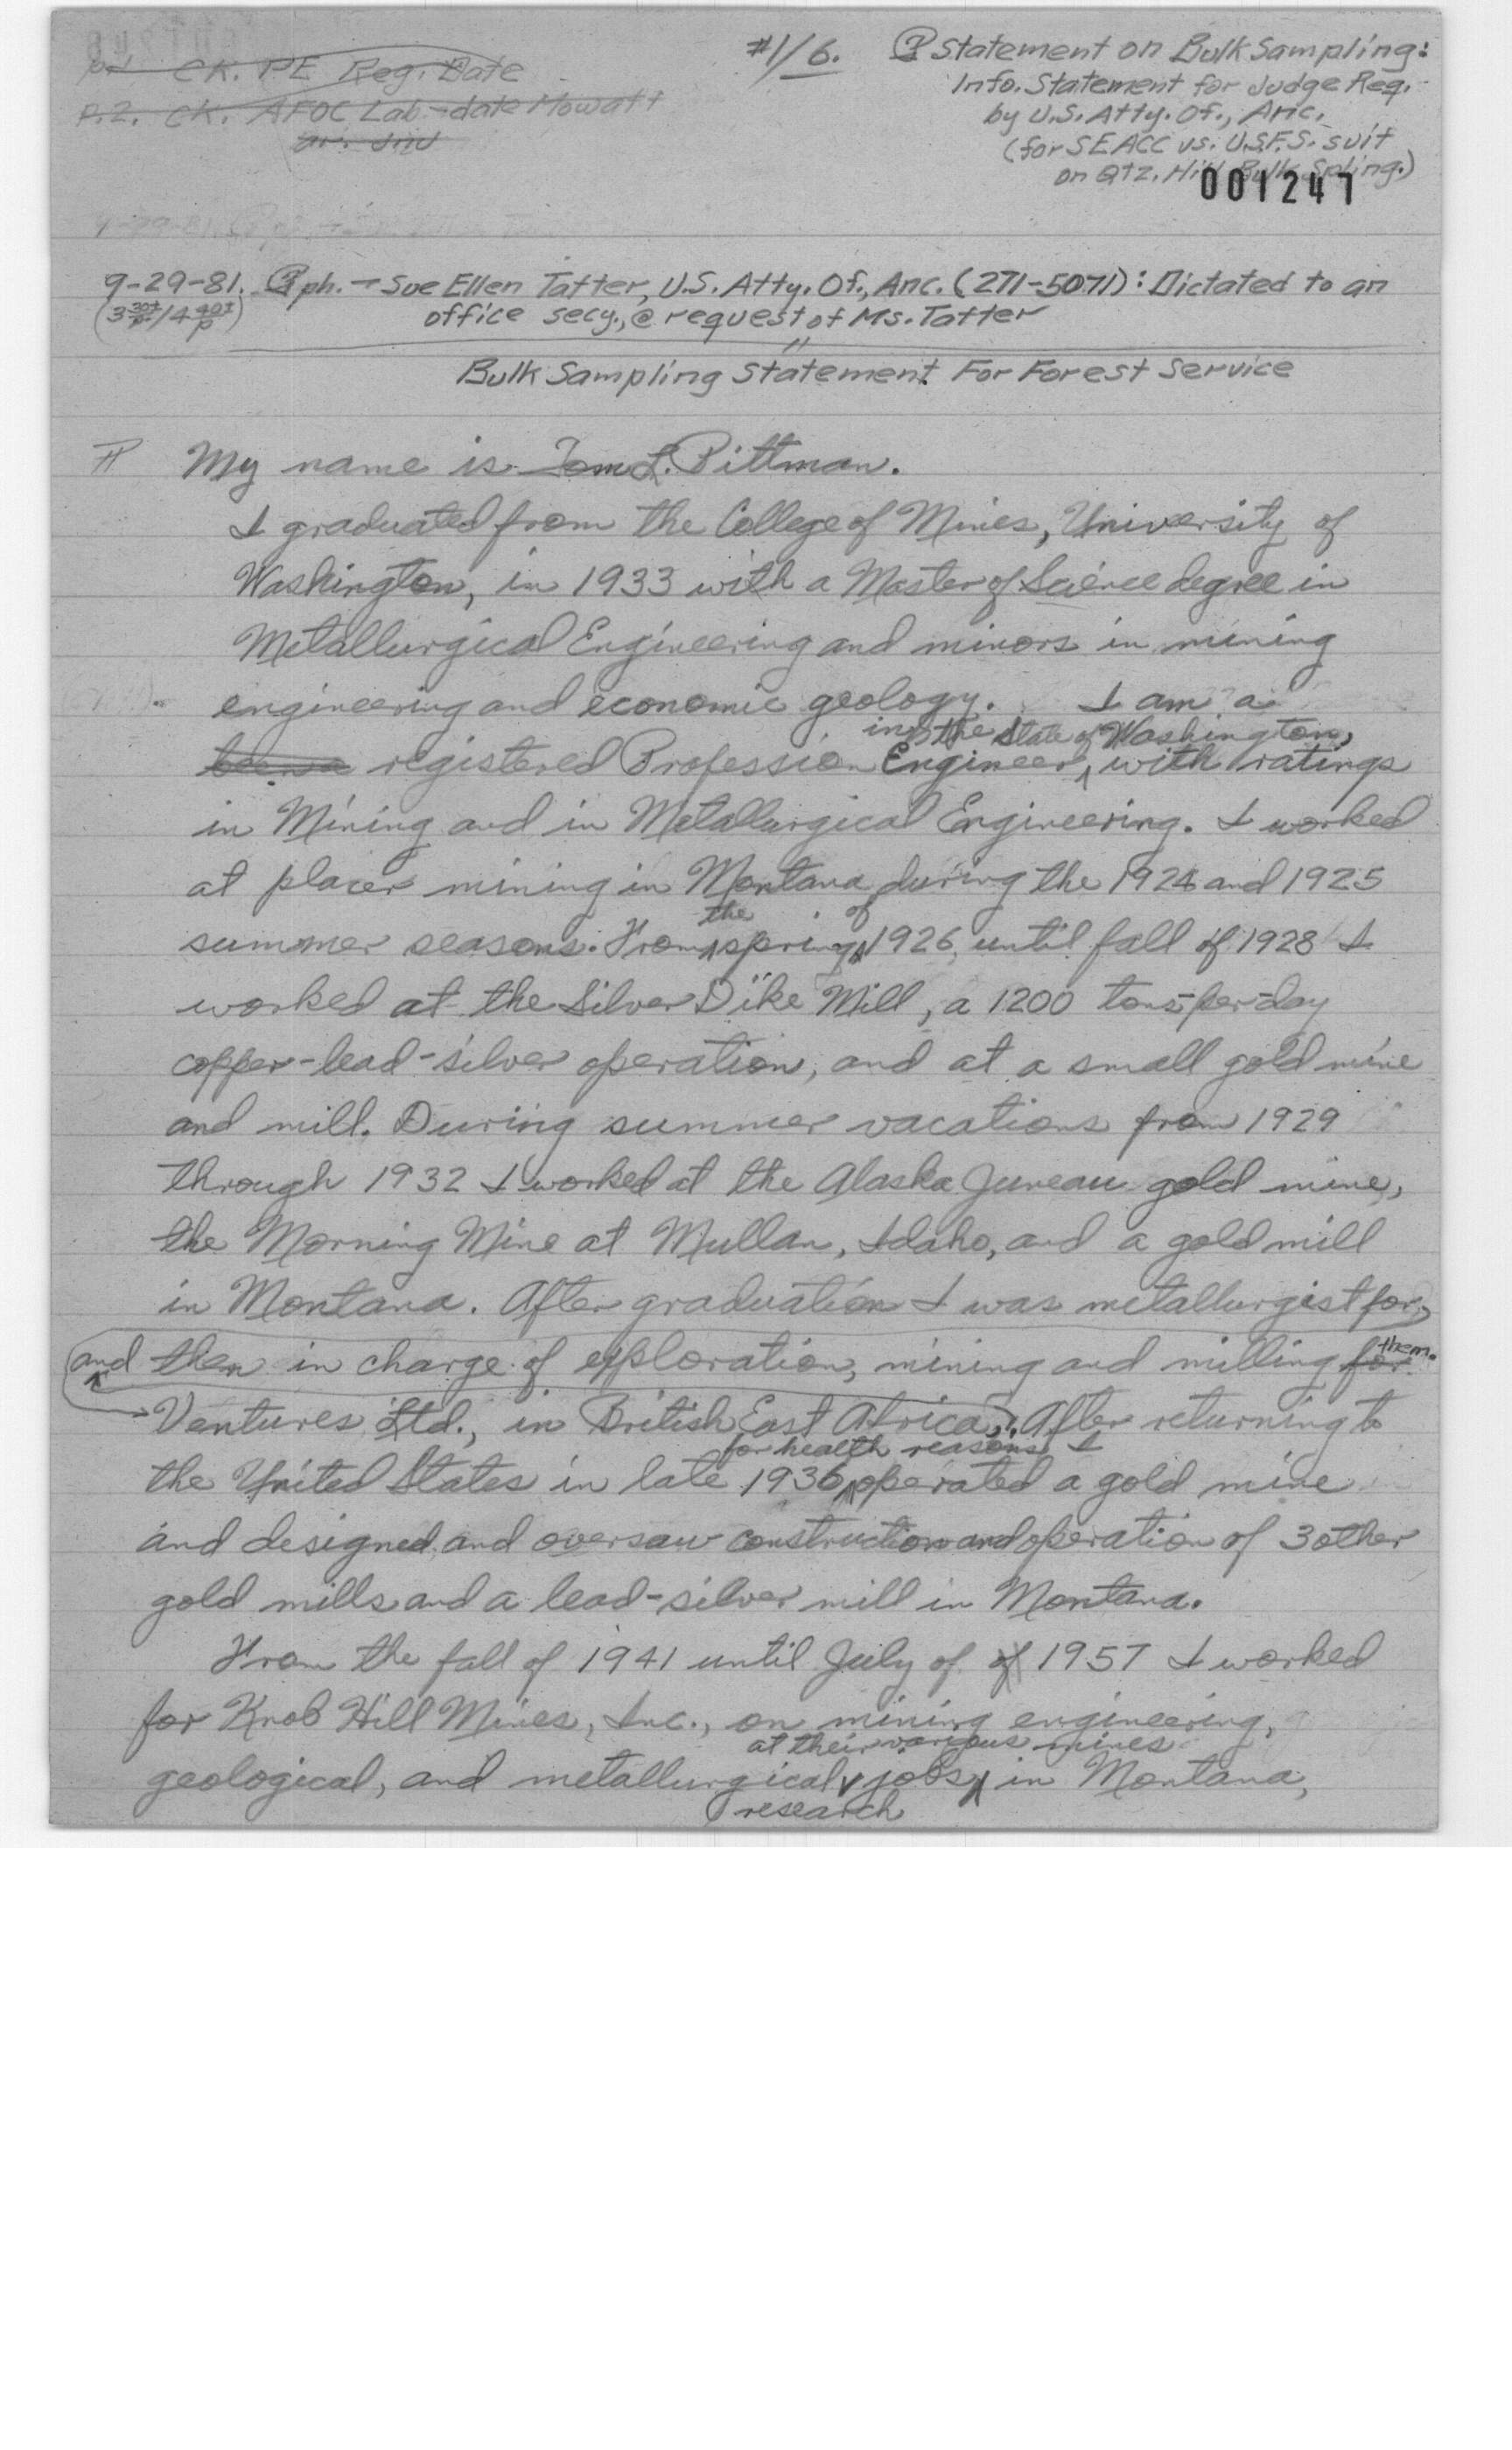 CK. PE Reg. Date
P.2. CK. AFOC Lab - date Mowatt
#1/6. Statement on Bulk Sampling:
Info. Statement for Judge Req.
by U.S. Atty. Of., Anc.
(for SEACC vs. U.S.F.S. suit
on Qtz. Hill Bulk Spling.)
001247
9-29-81. ph. → Sue Ellen Tatter, U.S. Atty. Of., Anc. (271-5071): Dictated to an
office secy., @ request of Ms. Tatter
Bulk Sampling Statement For Forest Service
My name is Tom L. Pittman.
I graduated from the College of Mines, University of
Washington, in 1933 with a Master of Science degree in
Metallurgical Engineering and minors in mining
engineering and economic geology. I am a
in the State of Washington,
registered Profession Engineer, with ratings
in Mining and in Metallurgical Engineering. I worked
at placer mining in Montana during the 1924 and 1925
the of
summer seasons. From spring 1926, until fall of 1928 I
worked at the Silver Dike Mill, a 1200 tons-per-day
copper-lead-silver operation, and at a small gold mine
and mill. During summer vacations from 1929
through 1932 I worked at the Alaska Juneau gold mine,
the Morning Mine at Mullan, Idaho, and a gold mill
in Montana. After graduation I was metallurgist for,
and then in charge of exploration, mining and milling for them.
Ventures Ltd., in British East Africa. After returning to
for health reasons I
the United States in late 1936 operated a gold mine
and designed and oversaw construction and operation of 3 other
gold mills and a lead-silver mill in Montana.
From the fall of 1941 until July of of 1957 I worked
for Knob Hill Mines, Inc., on mining engineering,
at their various mines
geological, and metallurgical jobs in Montana,
research